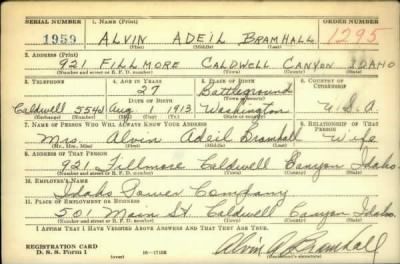 SERIAL NUMBER 1. NAME (Print) ORDER NUMBER
1959 ALVIN ADEIL BRAMHALL 1295
(First) (Middle) (Last)
2. ADDRESS (Print)
921 FILLMORE CALDWELL CANYON IDAHO
(Number and street or R. F. D. number) (Town) (County) (State)
3. TELEPHONE 4. AGE IN YEARS 5. PLACE OF BIRTH 6. COUNTRY OF CITIZENSHIP
27 Battleground
DATE OF BIRTH (Town or county)
Caldwell 554J Aug. 1 1913 Washington U.S.A.
(Exchange) (Number) (Mo.) (Day) (Yr.) (State or country)
7. NAME OF PERSON WHO WILL ALWAYS KNOW YOUR ADDRESS 8. RELATIONSHIP OF THAT PERSON
Mrs Alvin Adeil Bramhall Wife
(Mr., Mrs., Miss) (First) (Middle) (Last)
9. ADDRESS OF THAT PERSON
921 Fillmore Caldwell Canyon Idaho.
(Number and street or R. F. D. number) (Town) (County) (State)
10. EMPLOYER'S NAME
Idaho Power Company
11. PLACE OF EMPLOYMENT OR BUSINESS
501 Main St. Caldwell Canyon Idaho.
(Number and street or R. F. D. number) (Town) (County) (State)
I AFFIRM THAT I HAVE VERIFIED ABOVE ANSWERS AND THAT THEY ARE TRUE.
REGISTRATION CARD
D. S. S. Form 1 16-17105 Alvin A. Bramhall
(Registrant's signature)